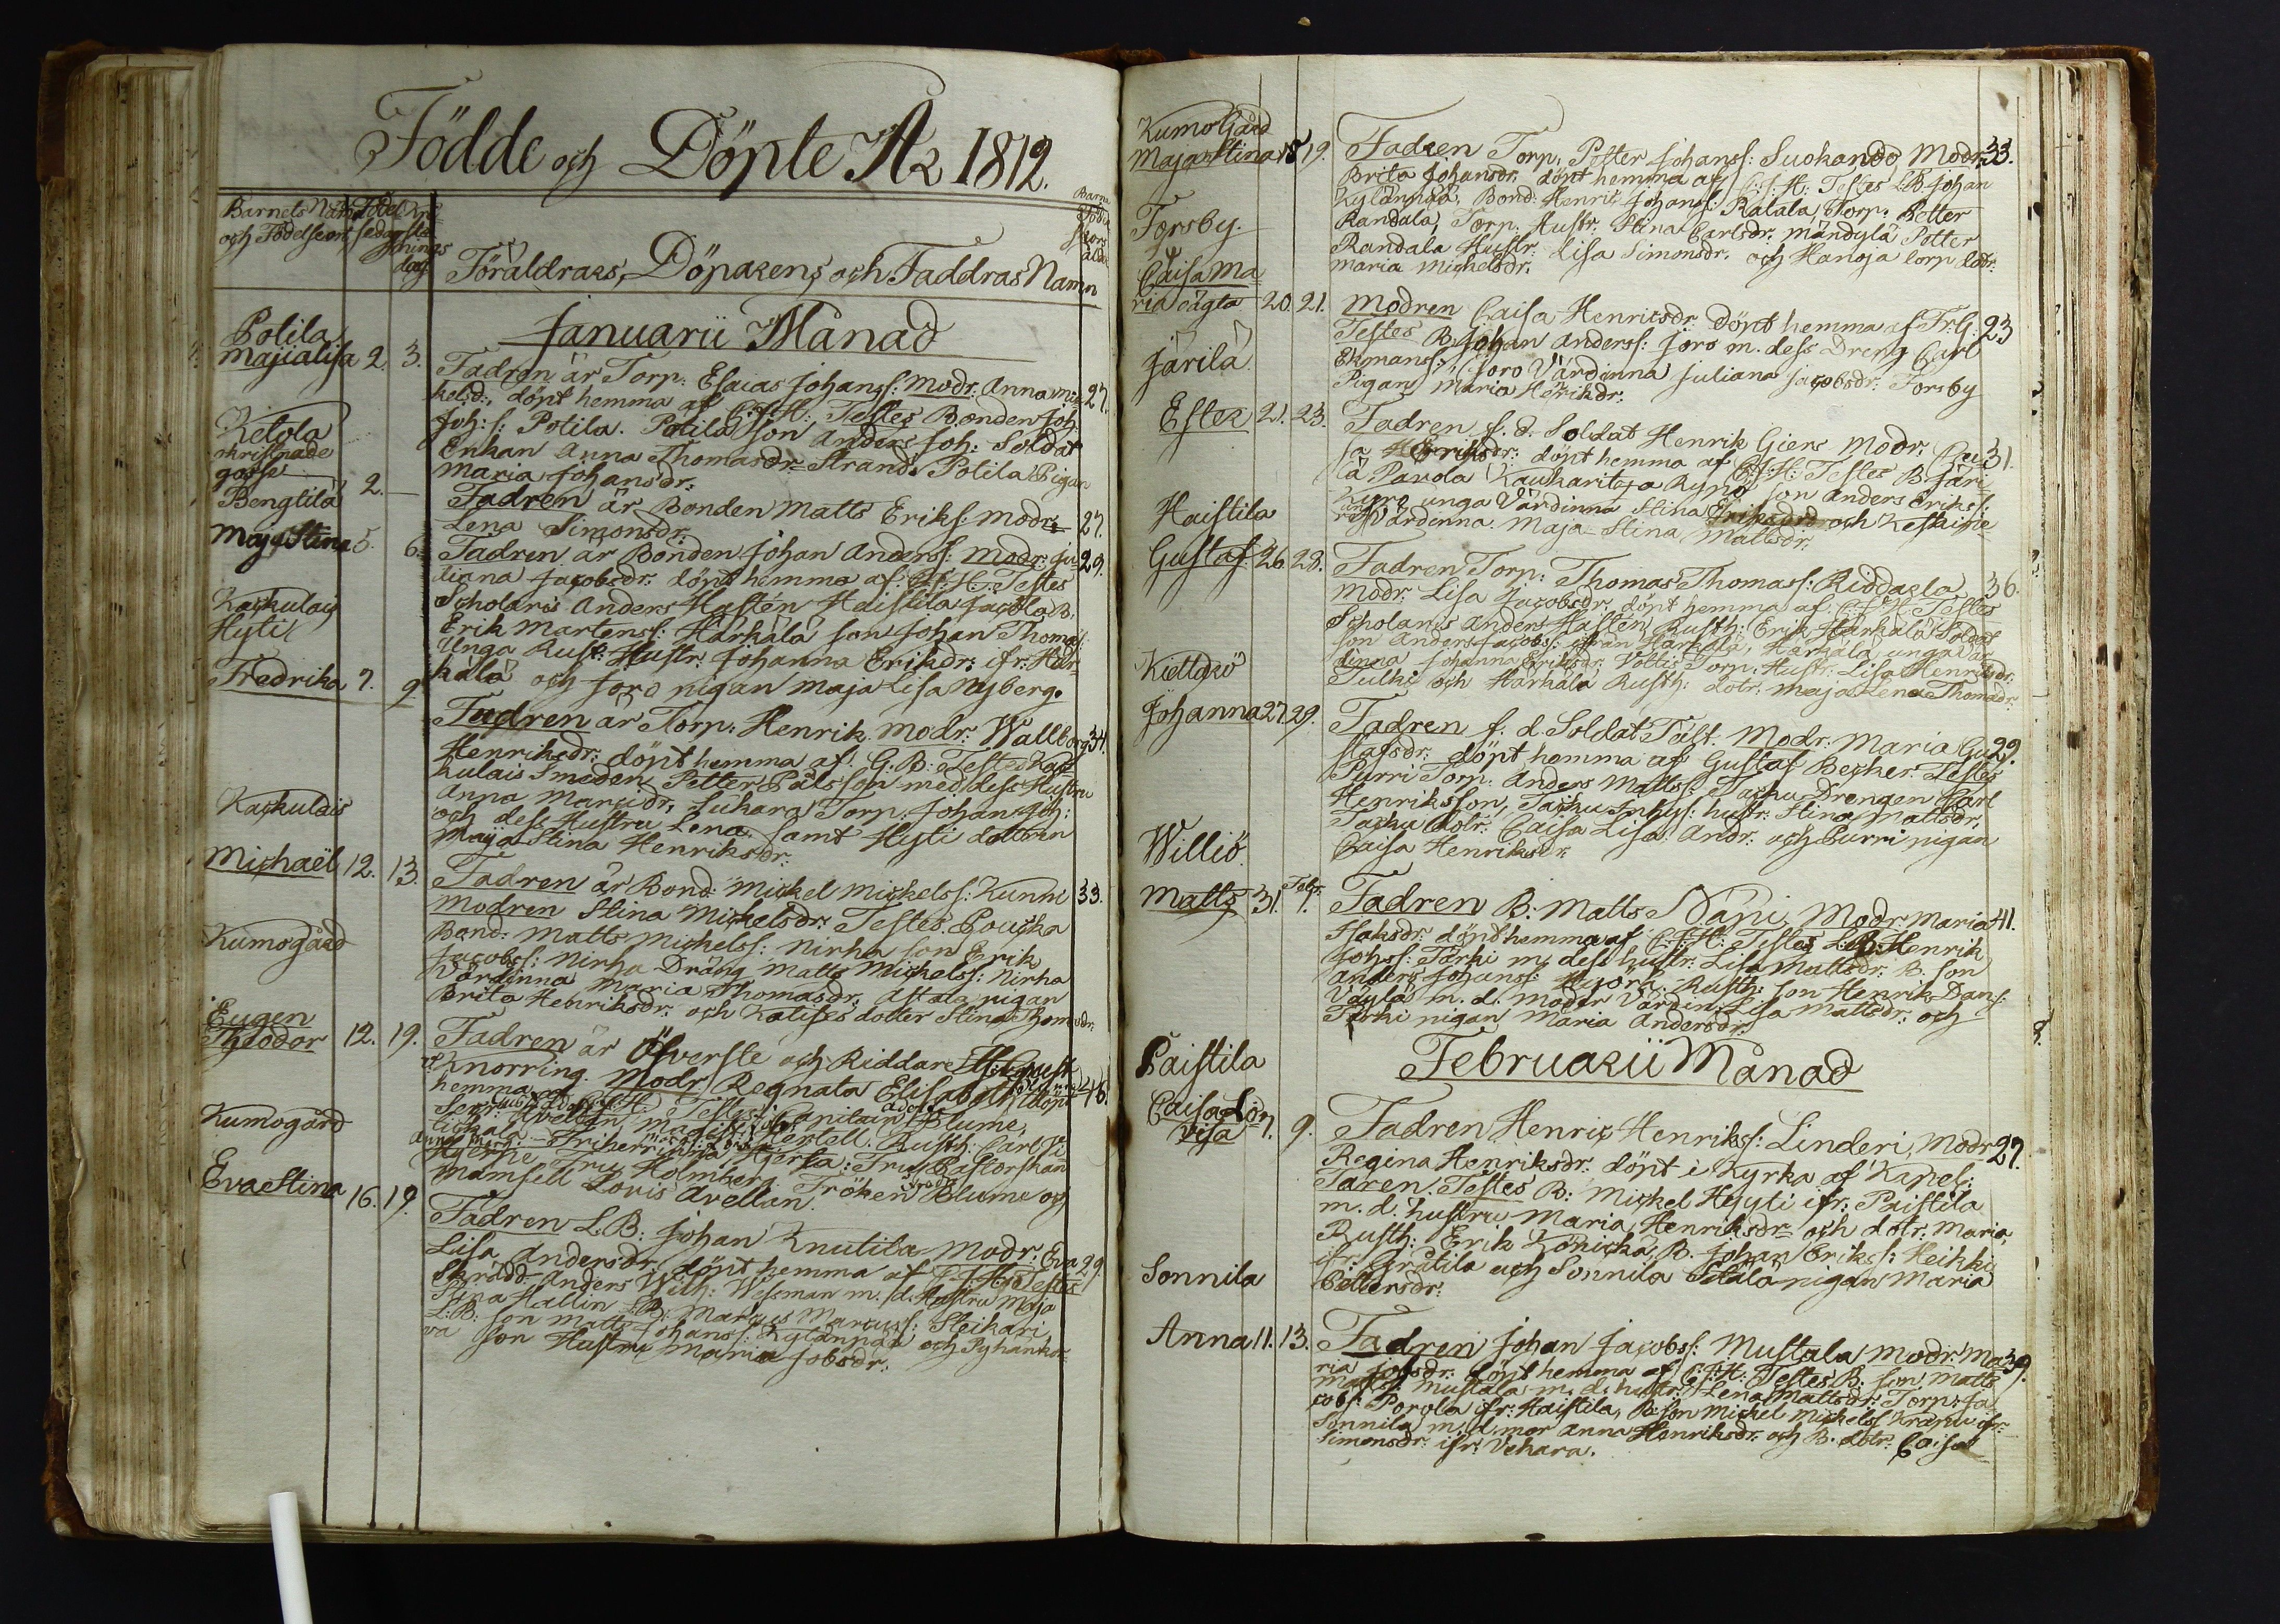 Födde och Döpte År 1812.
Barnets Namn och Födelseort
Födelsedag
Christnings dag
Föräldrars, Döparens och Faddras Namn
Barna Föderskors ålder
Januarii Månad
Potila
Majialisa 2. 3.
Fadren är Torp: Esaias Johanss: Modr: Anna Mic- 27.
kelsd:, döpt hemma af C:J:H: Testes Bonden Joh:
Joh: s: Potila. Potila son Anders Joh: Soldat
Enkan Anna Thomasdr: Strand, Potila Pigan
Maria Johansdr:
Ketola
okristnade
gosse 2. —
Fadren är Bonden Matts Eriks: Modr: 27.
Lena Simonsdr:
Bengtilä
Maja Stina 5. 6.
Fadren är Bonden Johan Anderss: Modr: Ju- 29.
liana Jacobsdr: döpt hemma af C:J:H: Testes
Scholaris Anders Hasten Haistila Jacola B.
Erik Martenss: Härkälä son Johan Thomas:
Unga Rust: Hustr: Johanna Erikdr: ifr: Här-
kälä och Joro pigan Maja Lisa Nyberg.
Kaskulais
Hyti
Fredrika 7. 9
Fadren är Torp: Henrik Modr: Wallborg 34.
Henriksdr: döpt hemma af G: B: Testes Kas-
kulais Smeden Petter Pålsson med dess Hustru
Anna Marcidr, Suhara Torp. Johan Joh:
och dess Hustru Lena, samt Hyti dottren
Maija Stina Henriksdr:
Kaskulais
Michaël 12. 13.
Fadren är Bond: Mickel Mickelss: Kunni 33.
Modren Stina Mickelsdr: Testes Pouska
Bond: Matts Mickelss: Nirha son Erik
Jacobs: Nirha Dräng Matts Mickelss: Nirha
Värdinna Maria Thomasdr: Astala pigan
Brita Henriksdr: och Katises dotter Stina Thomsdr:
Kumogård
Eugen
Theodor 12. 19.
Fadren är Öfverste och Riddare
Knorring. Modr: Regnata Elisabeth döpt 46.
hemma af Testes: Capitain Adolf Blume,
Avellan, Hertell. Rusth: Carl
Friherrinna Hjerta: Fru Pastorskan
Fru Holmberg Fröken Blume och
Mamsell Lovis Avellan.
Kumogård
Eva Stina 16. 19.
Fadren L:B: Johan Knutila Modr: Eva 29.
Lisa Andersdr. döpt hemma af C:J:H: Testes
Skrädd: Anders Wilh: Wessman m. d. Hustru Maja
Stina Hallin L:B: Marcus Marcuss: Steikari
L:B: son Matts Johanss: Kylänpää och Pyhänko-
va son Hustru Maria Jobsdr:
Kumogård
Maja Stina 18 19.
Fadren Torp. Petter Johanss: Suokando Modr: 33.
Brita Johansdr: döpt hemma af C:J:H: Testes L:B: Johan
Kylänpää, Bond: Henric Johans: Ratala, Torp: Petter
Randala, Torp: Hustr: Stina Carlsdr: Mändylä Petter
Randala Hustr: Lisa Simonsdr, och Hanoja Torp dotr:
Maria Mickelsdr:
Forsby.
Caisa Ma-
ria oägta 20. 21.
Modren Caisa Henricsdr: döpt hemma af Fr:G: 23
Testes B: Johan Anderss: Joro m. dess Dreng Carl
Ekmanss: Joro Värdinna Juliana Jacobsdr: Forsby
Pigan Maria Henrikdr:
Järilä
Ester 21. 23.
Fadren f. d. Soldat Henrik Giers Modr: Cai- 31.
sa Henriksdr: döpt hemma af C:J:H: Testes B: Järi-
lä Pavola Kaukaritsa Kyrö son Anders Eriks:
Kyrö unga Värdinna Stina Eriksdr: och Keskine
Värdinna Maja-Stina Mattsdr:
Haistila
Gustaf 26. 28.
Fadren Torp: Thomas Thomass: Riddagla 36.
Modr: Lisa Jacobsdr: döpt hemma af C:J:H: Testes
Scholaris Anders Hasten, Rusth: Erik Härkälä Soldat
son Anders Jacobs: från Härkälä, Härkälä, unga Vär-
dinna Johanna Eriksdr: Voltti Torp: Hustr: Lisa Henriksdr:
Tulki och Härkälä Rusth: dotr: Maja Lena Thomadr:
Kiettarö
Johanna 27. 29.
Fadren f. d. Soldat Fält. Modr: Maria Gu- 29.
stafsdr: döpt hemma af Gustaf Becker. Testes
Purri Torp: Anders Mattss: Tasku Drengen Carl
Henriksson, Tasku Inhys: hustr: Stina Mattsdr,
Tasku dotr: Caisa Lisa Andr: och Purri pigan
Caisa Henriksdr:
Williö
Matts 31. Febr. 1.
Fadren B: Matts Näpi Modr: Maria 41.
Isaksdr: döpt hemma af C:J:H: Testes L:B: Henrik
Johs: Tarki m. dess hustr: Lisa Mattsdr: B. son
Anders Johanss: Hyörä. Rusth: son Henrik Dans:
Väylä m. d. moder Värdin: Lisa Mattsdr: och
Tarki pigan Maria Andersdr:
Februarii Månad
Paistila
Caisa Lo-
visa 7. 9.
Fadren Henric Henrikss: Linderi, Modr 27.
Regina Henriksdr: döpt i Kyrka af Kapel:
Taren. Testes B: Mickel Hyyti ifr: Paistila
m. d. hustru Maria Henriksdr: och dotr: Maria,
Rusth: Erik Könickä, B. Johan Eriks: Heikki
ifr: Grätila och Sonnila Sälä pigan Maria
Pettersdr:
Sonnila
Anna 11. 13.
Fadren Johan Jacobss: Mustala Modr: Ma- 39.
ria Jobsdr: döpt hemma af C:J:H: Testes B. son Matts
Matts: Mustala m. d. hustr: Lena Mattsdr: Torp: Ja-
cobs: Porola ifr: Haistila, B: son Mickel Mickelss: Krannu ifr:
Sonnila m. d. mor Anna Henriksdr: och B. dotr: Caisa
Simonsdr: ifr: Vehara.